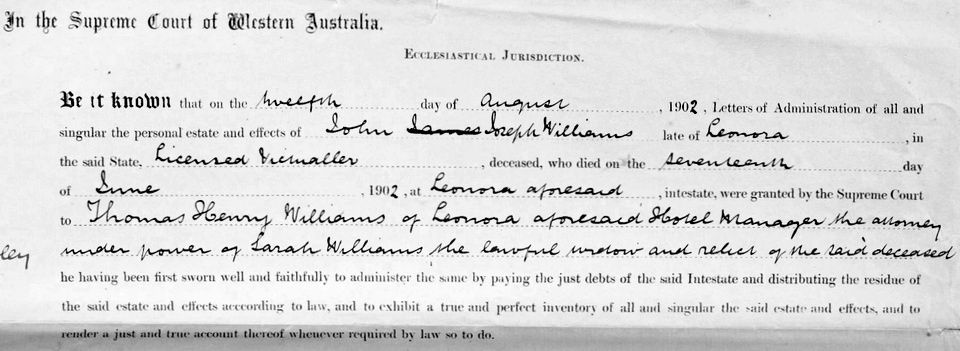 In the Supreme Court of Western Australia.
Ecclesiastical Jurisdiction.
Be it known that on the twelfth day of August, 1902, Letters of Administration of all and
singular the personal estate and effects of John James Joseph Williams late of Leonora, in
the said State, Licensed Victualler, deceased, who died on the seventeenth day
of June, 1902, at Leonora aforesaid, intestate, were granted by the Supreme Court
to Thomas Henry Williams of Leonora aforesaid Hotel Manager the attorney
under power of Sarah Williams the lawful widow and relict of the said deceased
ley
he having been first sworn well and faithfully to administer the same by paying the just debts of the said Intestate and distributing the residue of
the said estate and effects acccording to law, and to exhibit a true and perfect inventory of all and singular the said estate and effects, and to
render a just and true account thereof whenever required by law so to do.